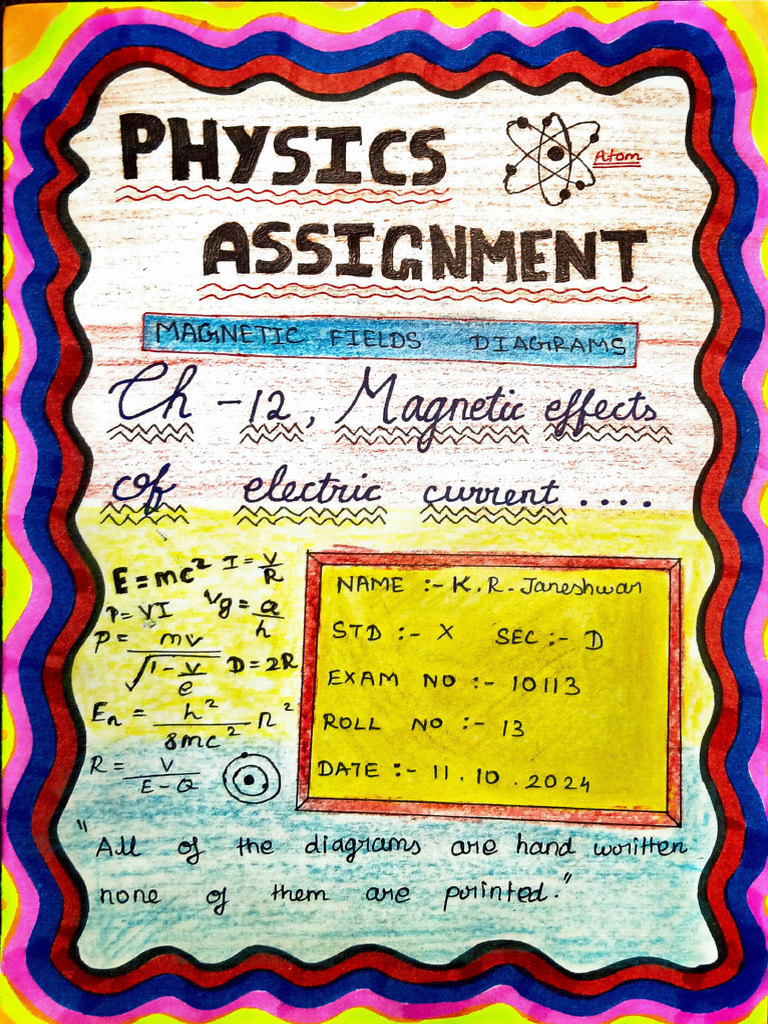 PHYSICS
Atom
ASSIGNMENT
MAGNETIC FIELDS DIAGRAMS
Ch - 12, Magnetic effects
of electric current ....
E = mc² I = V/R
P = VI Vg = a/h
P = mv/√1 - v/e D = 2R
Eₙ = h²/8mc² n²
R = V/E - Q
NAME :- K. R. Janeshwar
STD :- X SEC :- D
EXAM NO :- 10113
ROLL NO :- 13
DATE :- 11.10.2024
"All of the diagrams are hand written
none of them are printed."